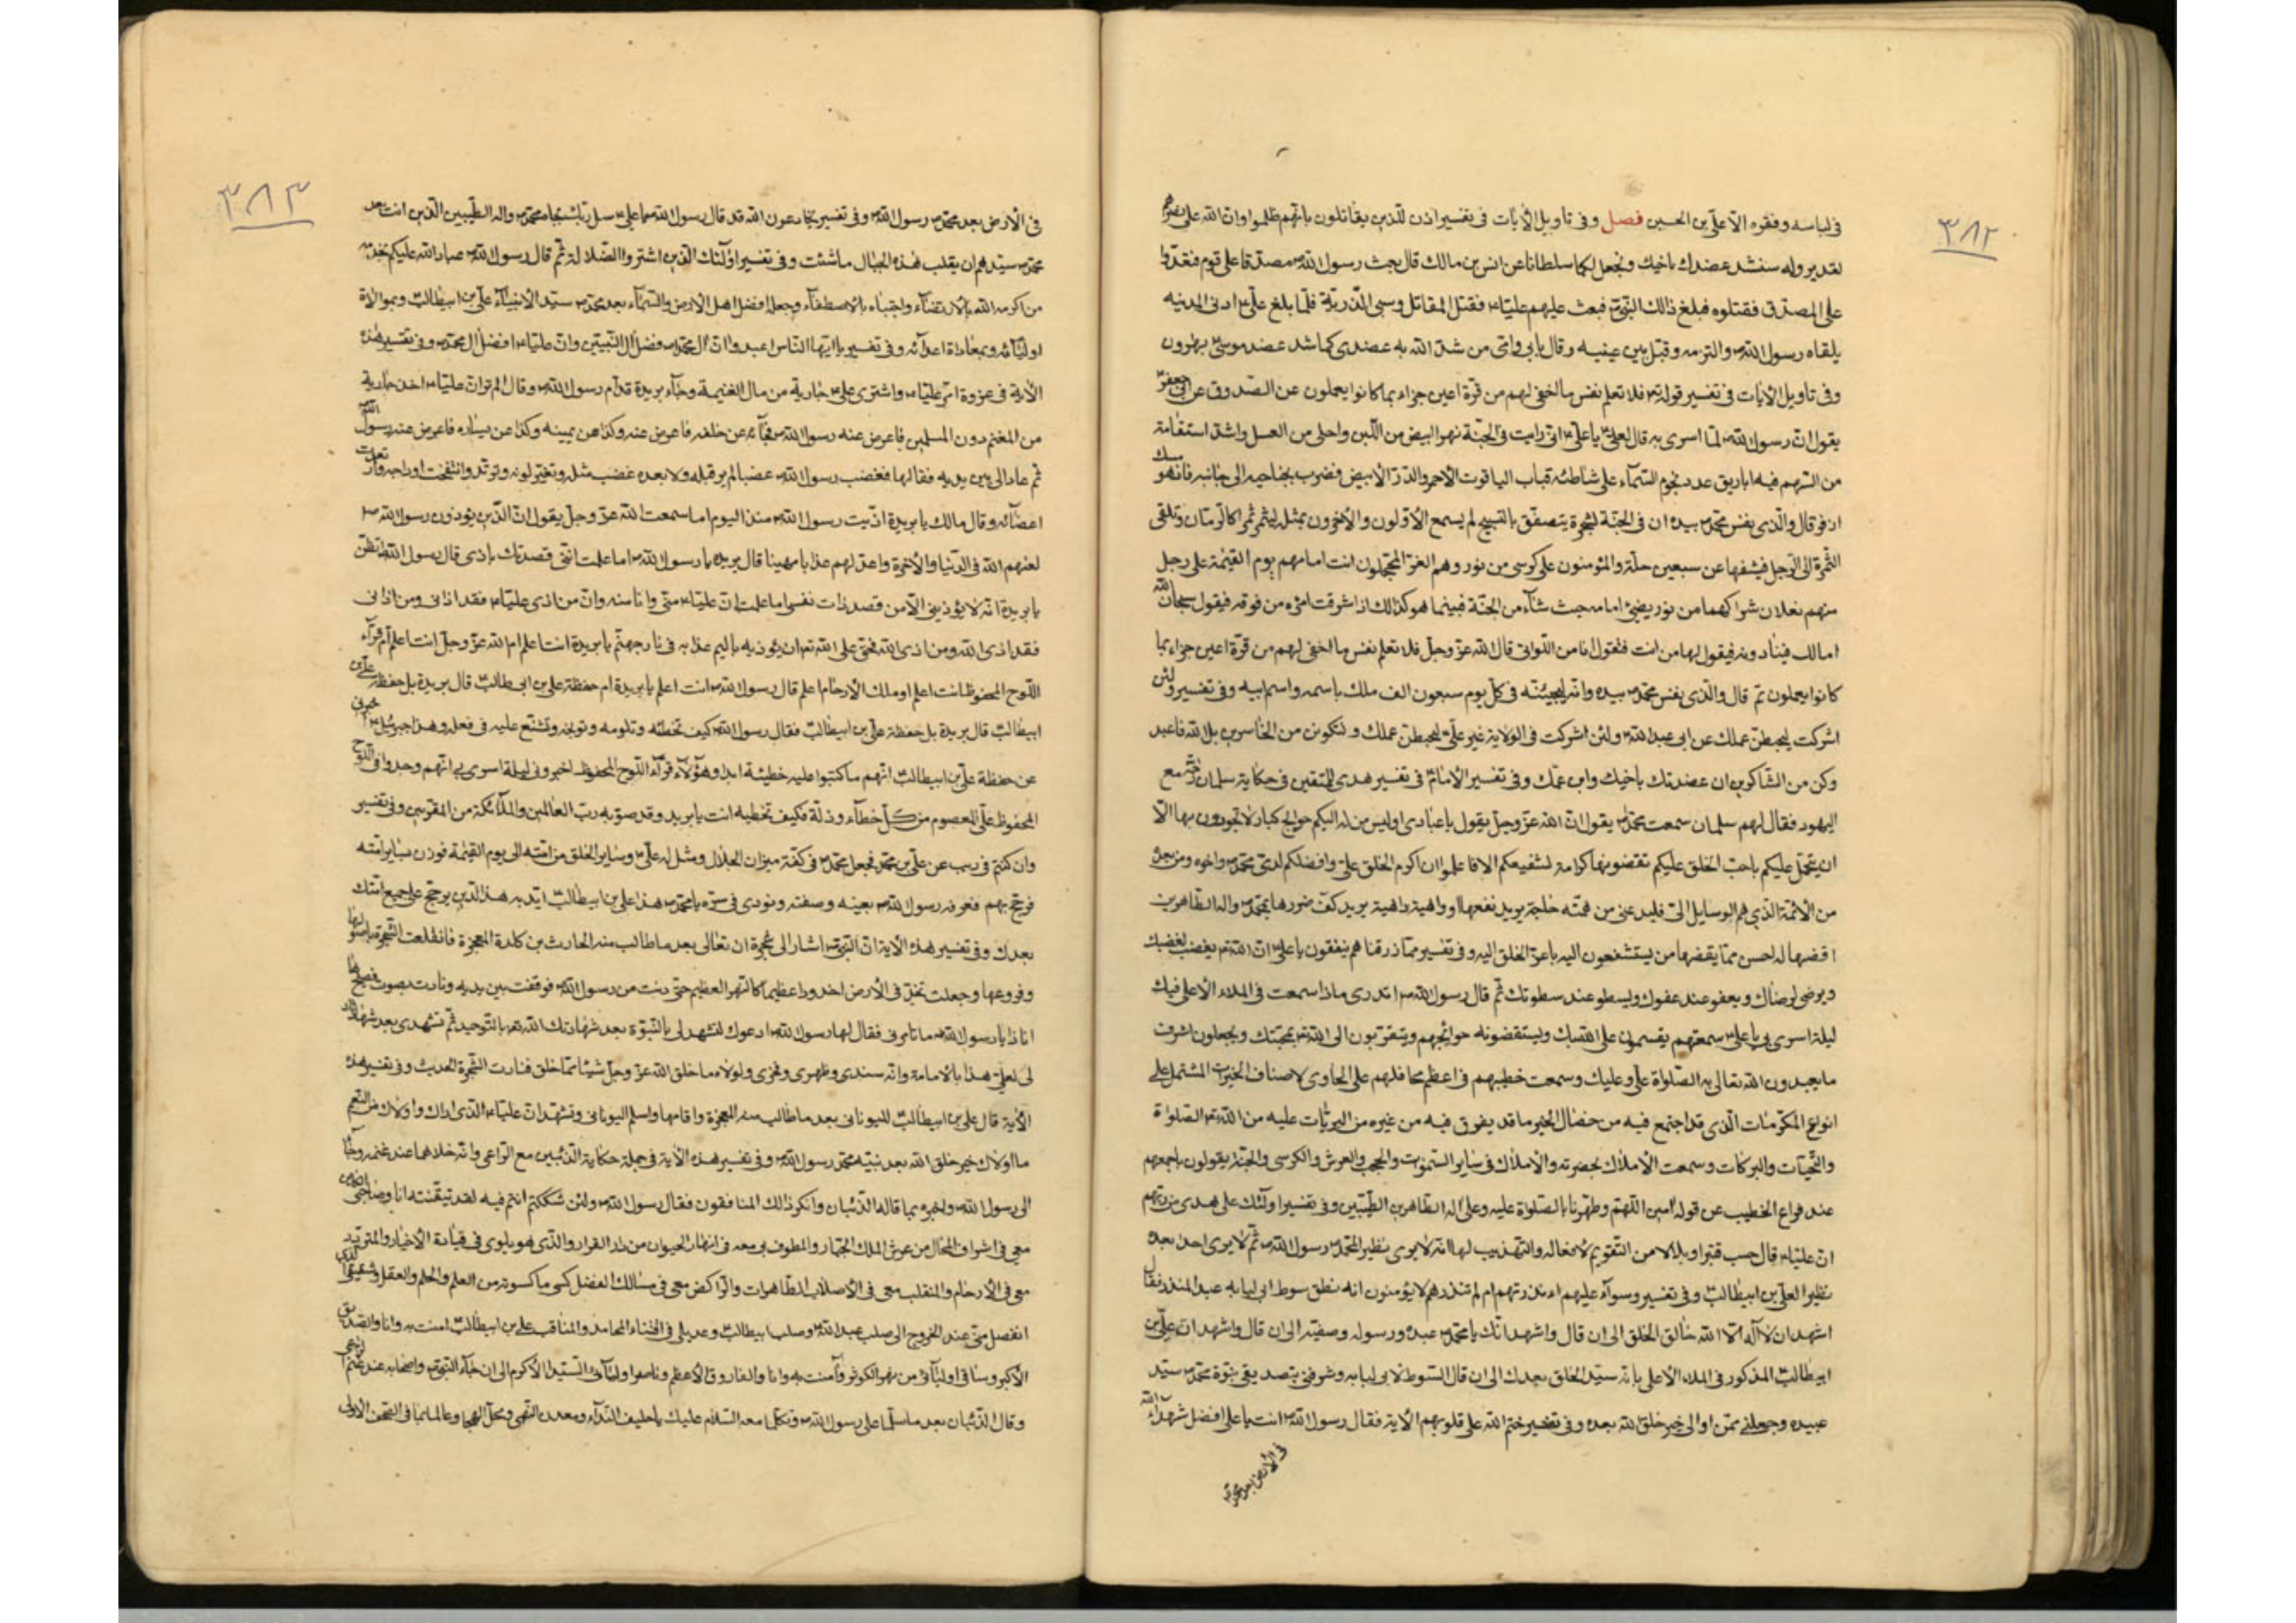 ٣٨٢
في لباسه وفقره الا علي بن الحسين فصل وفي تاويل الآيات في تفسير اذن للذين يقاتلون بانهم ظلموا وان الله على نصرهم
لقدير وله سنشد عضدك باخيك ونجعل لكما سلطانا عن انس بن مالك قال بعث رسول الله ص مصدقا على قوم فعدوا
على المصدق فقتلوه فبلغ ذلك النبي ص فبعث عليهم عليا ع فقتل المقاتل وسبى الذرية فلما بلغ علي ع ادنى المدينه
يلقاه رسول الله ص والتزمه وقبل بين عينيه وقال بابي وامي من شد الله به عضدي كما شد عضد موسى بهرون
وفي تاويل الآيات في تفسير قوله تع فلا تعلم نفس ما اخفي لهم من قرة اعين جزاء بما كانوا يعملون عن الصدوق عن ابي جعفر
يقول ان رسول الله ص لما اسري به قال لعلي ع يا علي ع اني رايت في الجنة نهرا ابيض من اللبن واحلى من العسل واشد استقامة
من السهم فيه اباريق عدد نجوم السماء على شاطئه قباب الياقوت الاحمر والدر الابيض فضرب بجناحيه الى جانبه فاذا هو مسك
اذفر قال والذي نفس محمد ص بيده ان في الجنة لشجرة يتصفق بالتسبيح لم يسمع الاولون والآخرون بمثله يثمر ثمرا كالرمان وتلقى
الثمرة الى الرجل فيشقها عن سبعين حلة والمؤمنون على كرسي من نور وهم الغر المحجلون انت امامهم يوم القيمة على رجل
منهم نعلان شراكهما من نور يضيئ امامه حيث شاء من الجنة فبينما هو كذلك اذا شرقت امرءه من فوقه فيقول سبحان الله
امالك فينا دوله فيقول لها من انت فتقول انا من اللواتي قال الله عز وجل فلا تعلم نفس ما اخفي لهم من قرة اعين جزاء بما
كانوا يعملون ثم قال والذي نفس محمد ص بيده وانه ليجيئنه في كل يوم سبعون الف ملك باسمه واسم ابيه وفي تفسير ولئن
اشركت ليحبطن عملك عن ابي عبد الله ع ولئن اشركت في الولاية غير علي ليحبطن عملك ولتكونن من الخاسرين بل الله فاعبد
وكن من الشاكرين ان عضدتك باخيك وابن عمك وفي تفسير الامام ع في تفسير هدى للمتقين في حكاية سلمان مع
اليهود فقال لهم سلمان سمعت محمدا ص يقول ان الله عز وجل يقول يا عبادي اوليس من له اليكم حوايج كبار لا تجودون بها الا
ان يتحمل عليكم باحب الخلق عليكم تقضونها كرامة لشفيعكم الا فاعلموا ان اكرم الخلق علي وافضلكم لدي محمد ص واخوه ومن بعده
من الائمة الذي هم الوسايل الي فليدعني من همته حاجة يريد نفعها او داهية يريد كف ضررها بمحمد ص واله الطاهرين
اقضها له احسن مما يقضها من يستشفعون اليه باعز الخلق اليه وفي تفسير مما رزقناهم ينفقون يا علي ع ان الله تع يغضب لغضبك
ويرضى لرضاك ويعفو عند عفوك ويسطو عند سطوتك ثم قال رسول الله ص اتدري ماذا سمعت في الملاء الاعلى فيك
ليلة اسري بي يا علي ع سمعتهم يقسمون على الله بك ويستقضونه حوائجهم ويتقربون الى الله تع بمحبتك ويجعلون اشرف
ما يعبدون الله تعالى به الصلواة علي وعليك وسمعت خطيبهم في اعظم محافلهم علي الحاوي لاصناف الخيرات المشتمل على
انواع المكرمات الذي قد اجتمع فيه من خصال الخير ما قد يفرق فيه من غيره من البريات عليه من الله تع الصلواة
والتحيات والبركات وسمعت الاملاك بحضرته والاملاك في ساير السموات والحجب والعرش والكرسي والجنة يقولون باجمعهم
عند فراغ الخطيب عن قوله امين اللهم وطهرنا بالصلواة عليه وعلى اله الطاهرين الطيبين وفي تفسير اولئك على هدى من ربهم
ان عليا ع قال حسب قنبرا وبلالا من التقويم لافعاله والتهذيب لها انه لا يرى نظيرا لمحمد ص رسول الله ص ثم لا يرى احدا بعده
نظيرا لعلي بن ابيطالب ع وفي تفسير وسوآء عليهم ءانذرتهم ام لم تنذرهم لا يؤمنون انه نطق سوط ابي لبابه عبد المنذر فقال
اشهد ان لا اله الا الله خالق الخلق الى ان قال واشهد انك يا محمد ص عبده ورسوله وصفيه الى ان قال واشهد ان علي بن
ابيطالب ع المذكور في الملاء الاعلى بانه سيد الخلق بعدك الى ان قال السوط لابي لبابه وشرفني بتصديقي بنبوة محمد ص سيد
عبيده وجعلني ممن اوالي خير خلق الله بعده وفي تفسير ختم الله على قلوبهم الاية فقال رسول الله ص انت يا علي افضل شهدآء الله
في الارض بعد محمد ص
٣٨٣
في الارض بعد محمد ص رسول الله ص وفي تفسير يخادعون الله قد قال رسول الله ص يا علي ع سل ربك بجاه محمد ص واله الطيبين الذين انت بعد
محمد ص سيدهم ان يقلب هذه الجبال ما شئت وفي تفسير اولئك الذين اشتروا الضلالة ثم قال رسول الله ص عباد الله عليكم بخدمة
من اكرمه الله بالارتضاء واجتباه بالاصطفاء وجعله افضل اهل الارض والسماء بعد محمد ص سيد الانبياء علي بن ابيطالب ع وبموالاة
اوليائه وبمعاداة اعدائه وفي تفسير يا ايها الناس اعبدوا ان ال محمد ص افضل ال النبيين وان عليا ع افضل ال محمد ص وفي تفسير هذه
الاية في غزوة امر عليا ع واشترى علي ع جارية من مال الغنيمة وجاء بريدة قدام رسول الله ص وقال الم تر ان عليا ع اخذ جارية
من المغنم دون المسلمين فاعرض عنه رسول الله ص فجاءه عن خلفه فاعرض عنه وكذا عن يمينه وكذا عن يساره فاعرض عنه رسول الله
ثم عاد الى بين يديه فقالها فغضب رسول الله ص غضبا لم ير قبله ولا بعده غضب مثله وتغير لونه وتربد وانتفخت اوداجه وارتعدت
اعضائه وقال مالك يا بريدة اذيت رسول الله ص منذ اليوم اما سمعت الله عز وجل يقول ان الذين يؤذون رسول الله ص
لعنهم الله في الدنيا والآخرة واعد لهم عذابا مهينا قال بريده يا رسول الله ص اما علمت انني قصدتك باذى قال رسول الله اتظن
يا بريدة انه لا يؤذيني الا من قصد ذات نفسي اما علمت ان عليا ع مني وانا منه وان من اذى عليا ع فقد اذاني ومن اذاني
فقد اذى الله ومن اذى الله فحق على الله تع ان يؤذيه باليم عذابه في نار جهنم يا بريدة انت اعلم ام الله عز وجل انت اعلم ام قرآء
اللوح المحفوظ انت اعلم او ملك الارحام اعلم قال رسول الله ص انت اعلم يا بريدة ام حفظة علي بن ابي طالب ع قال بريدة بل حفظة علي بن
ابيطالب ع قال بريدة بل حفظة علي بن ابيطالب ع فقال رسول الله ص كيف تخطئه وتلومه وتوبخه وتشنع عليه في فعله وهذا جبرئيل ع اخبرني
عن حفظة علي بن ابيطالب ع انهم ما كتبوا عليه خطيئة ابدا وهؤلاء قرآء اللوح المحفوظ اخبروني ليلة اسري بي انهم وجدوا في اللوح
المحفوظ علي المعصوم من كل خطاء وزلة فكيف تخطئه انت يا بريدة وقد صوبه رب العالمين والملائكة من المقربين وفي تفسير
وان كنتم في ريب عن علي بن محمد فجعل محمد ص في كفة ميزان الجلال ومثل له علي ع وساير الخلق من امته الى يوم القيمة فوزن بساير امته
فرجح بهم فعرفه رسول الله ص بعينه وصفته ونودي في سره يا محمد ص هذا علي بن ابيطالب ع ايد به هذا الدين يرجح على جميع امتك
بعدك وفي تفسير هذه الاية ان النبي ص اشار الى شجرة ان تعالى بعد ما طالب منه الحارث بن كلدة المعجزة فانقلعت الشجرة باصولها
وفروعها وجعلت تخد في الارض اخدودا عظيما كالنهر العظيم حتى دنت من رسول الله ص فوقفت بين يديه ونادت بصوت فصيح ها
انا ذا يا رسول الله ص ما تامرني فقال لها رسول الله ص ادعوك لتشهد لي بالنبوة بعد شهادتك الله تع بالتوحيد ثم تشهدي بعد شهادتك
لي لعلي هذا بالامامة وانه سندي وظهري وفخري ولولاه ما خلق الله عز وجل شيئا مما خلق فنادت الشجرة الحديث وفي تفسير هذه
الاية قال علي بن ابيطالب ع لليوناني بعد ما طالب منه المعجزة واقامها واسلم اليوناني وتشهد ان عليا ع الذي اراك واولاك من النعم
ما اولاك خير خلق الله بعد نبيه محمد رسول الله ص وفي تفسير هذه الاية في جملة حكاية الذئبين مع الراعي وانه خلاهما عند غنمه وجاء
الى رسول الله ص واخبره بما قاله الذئبان وانكر ذلك المنافقون فقال رسول الله ص ولئن شككتم انتم فيه لقد تيقنته انا وصاحبي الكائن
معي في اشرف المحال من عرش الملك الجبار والمطوف به معه في انهار الحيوان من دار القرار والذي هو يلوي في قيادة الاخيار والمتردد
معي في الارحام والمنقلب معي في الاصلاب الطاهرات والراكض معي في مسالك الفضل كسي ما كسوته من العلم والحلم والعقل وشقيقي الذي
انفصل مني عند الخروج الى صلب عبد الله ع وصلب ابيطالب ع وعديلي في اقتناء المحامد والمناقب علي بن ابيطالب ع امنت به وانا والصديق
الاكبر وساقي اوليائي من نهر الكوثر وآمنت به وانا والفاروق الاعظم وناصر اوليائي السيد الاكرم الى ان جاء النبي ص واصحابه عند غنم الراعي
وقال الذئبان بعد ما سلما على رسول الله ص وتكلما معه السلام عليك يا حليف النداء ومعدن النهى ومحل الحجا وعالما بما في الصحف الاولى